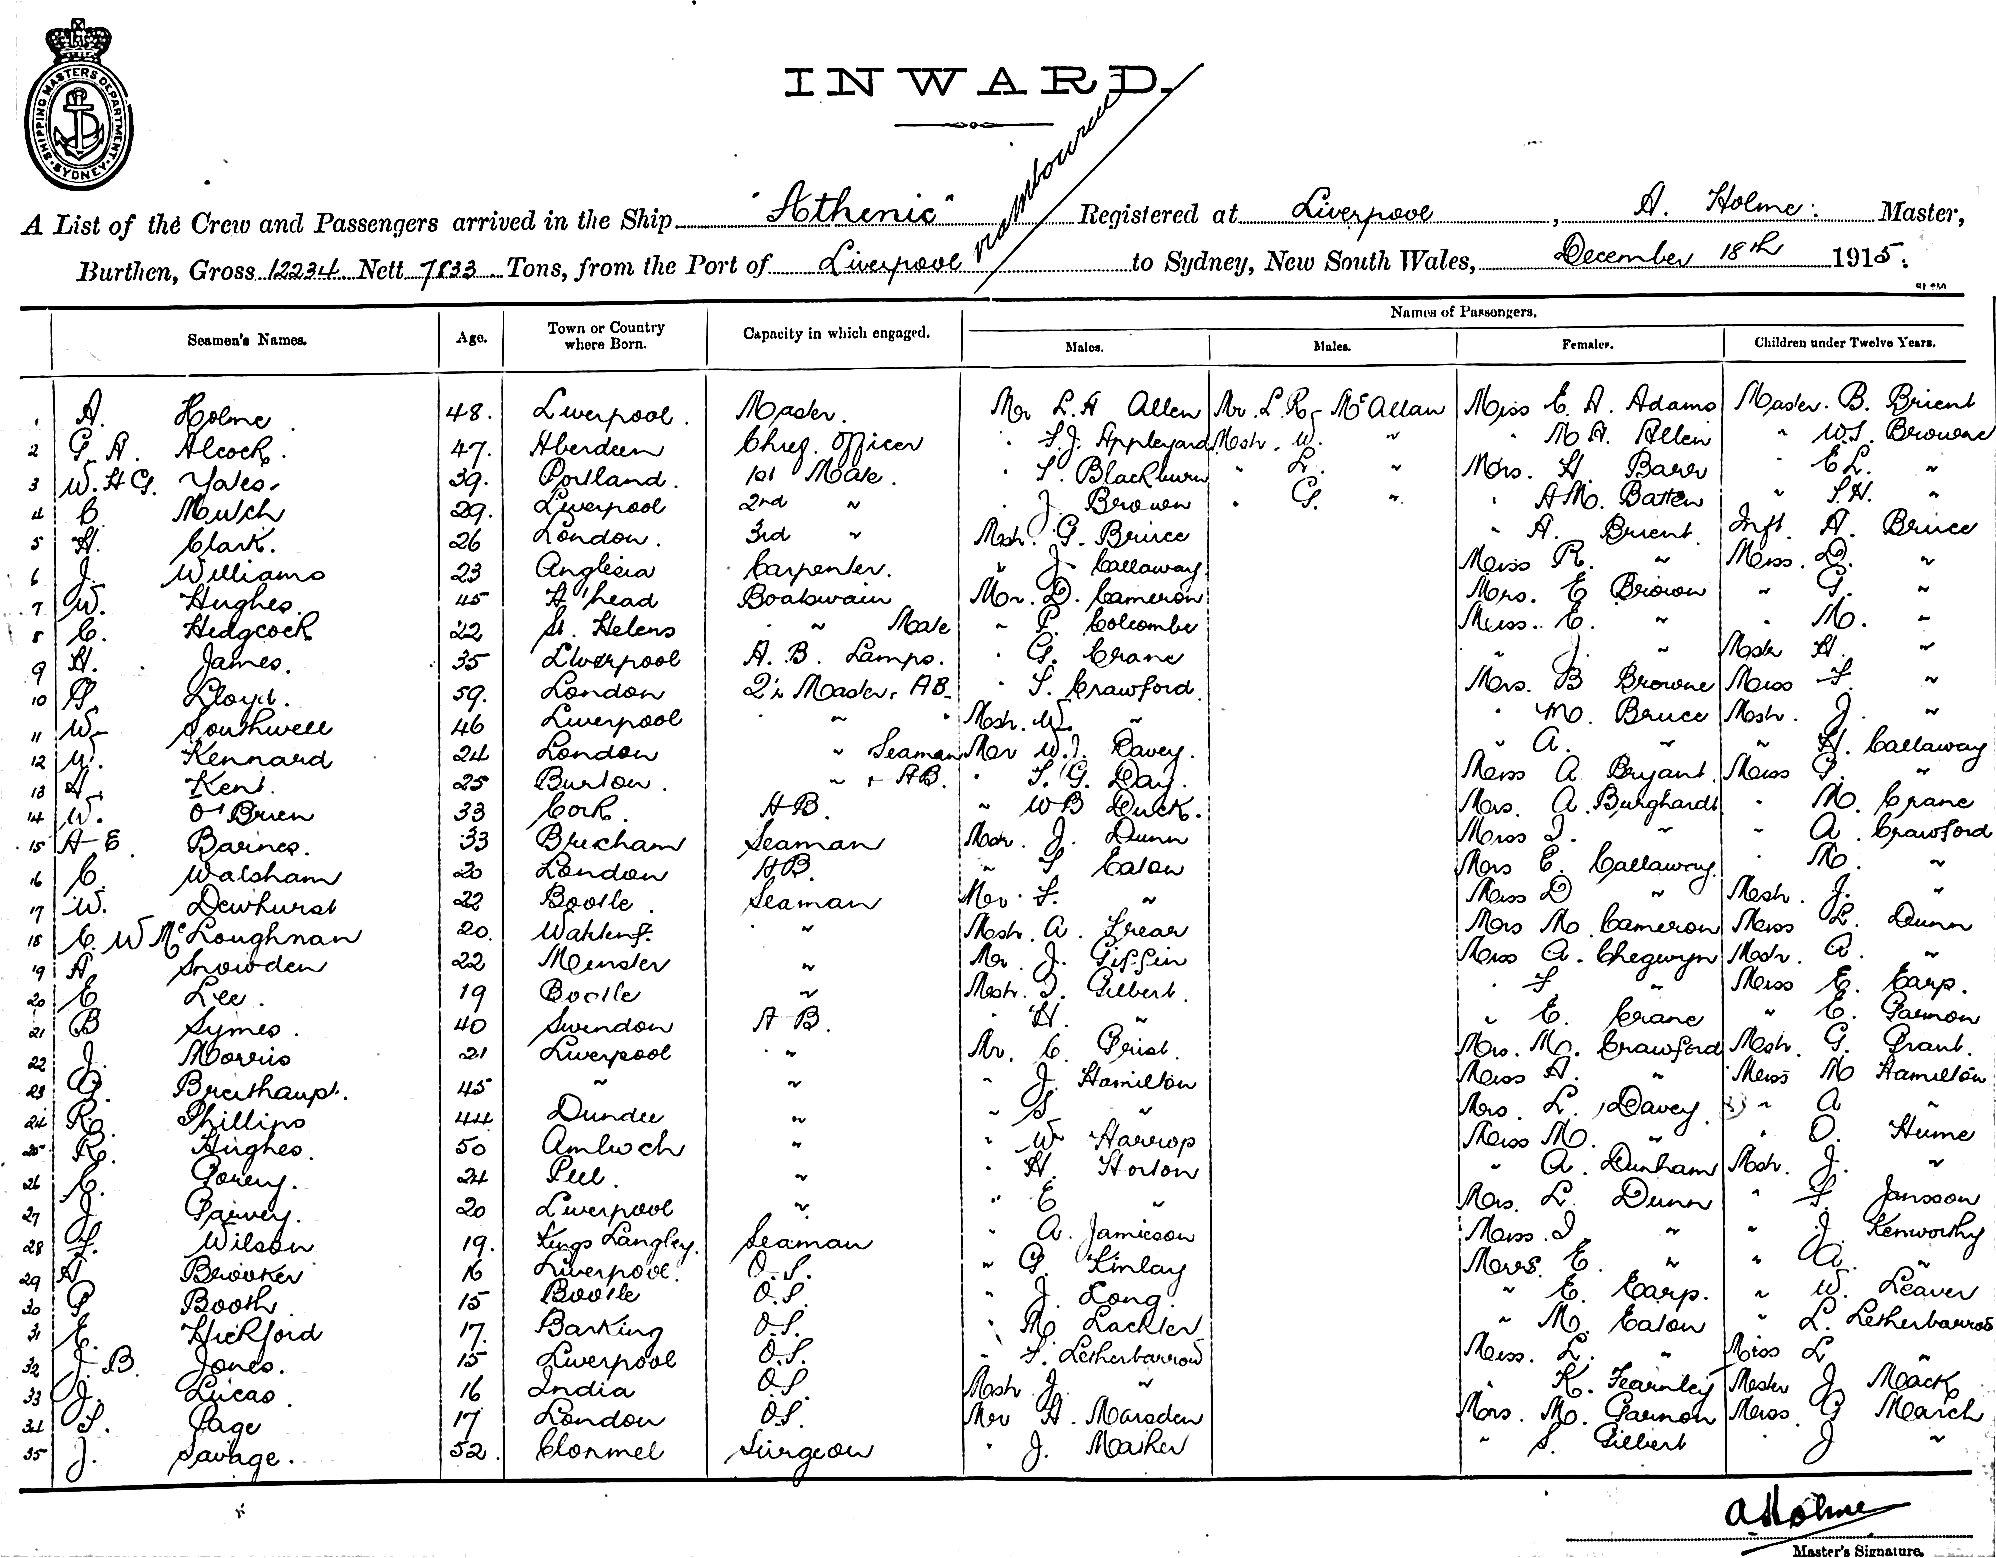 SHIPPING MASTERS DEPARTMENT. SYDNEY.
INWARD.
via Melbourne
A List of the Crew and Passengers arrived in the Ship "Athenic" Registered at Liverpool, A. Holme: Master,
Burthen, Gross 12234 Nett 7833 Tons, from the Port of Liverpool to Sydney, New South Wales, December 18th 1915.
Names of Passengers.
Seamen's Names. Age. Town or Country where Born. Capacity in which engaged. Males. Males. Females. Children under Twelve Years.
1 A. Holme 48. Liverpool. Master. Mr L.H Allen Mr. L.R. McAllan Miss E. A. Adams Master. B. Brient
2 G. A. Alcock. 47. Aberdeen Chief. Officer " F.J. Appleyard Mastr. W. " " M A. Allen " W.S. Browne
3 W. H G. Yates. 39. Portland. 1st Mate. " S. Blackburn " L. " Mrs. H. Barr " E L. "
4 C. Mutch 29. Liverpool 2nd " " J. Brown " G. " " A M. Batten " S.H. "
5 H. Clark. 26 London. 3rd " Mastr. G. Bruce " A. Brient. Inft. A. Bruce
6 J. Williams 23 Anglesia Carpenter. " J. Callaway Miss R. " Miss. D. "
7 W. Hughes. 45 H'head Boatswain Mr. D. Cameron Mrs. E Brown " G. "
8 C. Hedgcock 22 St. Helens " Mate " P. Colcombe Miss. E. " " M. "
9 H. James. 35 Liverpool A. B. Lamps. " G. Crane " J. " Mastr H. "
10 Lloyd. 59. London Qr Master. AB. " S. Crawford. Mrs. B Browne Miss F. "
11 W. Southwell 46 Liverpool " " Mastr. W. " " M. Bruce Mastr. J. "
12 W. Kennard 24 London " Seaman Mr W.J. Davey. " A. " " H. Callaway
13 A. Kent. 25 Burton. " + AB. " S. G. Day. Miss A Bryant. Miss P. "
14 W. O'Brien 33 Cork. AB. " W B Duck. Mrs. A. Burghardt " M. Crane
15 A E. Barnes. 33 Brixham Seaman Mastr. J. Dunn Miss I. " " A. Crawford
16 C. Walsham 20 London AB. " S Eaton Mrs E. Callaway. " M. "
17 W. Dewhurst 22 Bootle. Seaman Mr. F. " Miss D " Mastr. J. "
18 C. W McLoughnan 20. " Mastr. A. Frear Mrs M. Cameron Miss L. Dunn
19 A. Snowden 22 Minster " Mr. J. Giffin Miss A. Chegwyn Mastr. A. "
20 C Lee. 19 Bootle " Mastr. I. Gilbert. " F " Miss E. Earp.
21 B Symes. 40 Swindon A B. " H. " " E. Crane " E. Garmon
22 J. Morris 21 Liverpool " Mr. C. Grist. Mrs. M. Crawford Mastr. G. Grant.
23 G. Breithaupt. 45 " " " J. Hamilton Miss A. " Miss M Hamilton
24 R. Phillips 44 Dundee " " S " Mrs. L. Davey " A "
25 R. Hughes. 50 Amlwch " " W Harrop Miss M. " " O. Hume
26 C. Gorey. 24 Peel. " " H. Horton " A. Dunham Mastr. J. "
27 J Garvey. 20 Liverpool " " E " Mrs. L. Dunn " F Jansson
28 F. Wilson 19. Kings Langley. Seaman " A. Jamieson Miss. I " " J. Kenworthy
29 A Brooker 16 Liverpool. O.S. " G. Kinlay Miss. E. " " A. "
30 P Booth. 15 Bootle O.S. " J. Long. " E. Earp. " W. Leaver
31 E. Hickford 17. Barking O.S. " M Lackler " M. Eaton " L. Letherbarrow
32 J. B. Jones. 15 Liverpool O.S. " F. Letherbarrow Miss. L. " Miss L "
33 J. Lucas. 16 India O.S. Mastr. J. " " K. Fearnley Master J. Mack
34 S. Page 17 London O.S. Mr H. Marsden Mrs. M. Garmon Miss. G March
35 J. Savage. 52. Clonmel Surgeon " J. Masher " S. Gilbert " J "
A Holme
Master's Signature.